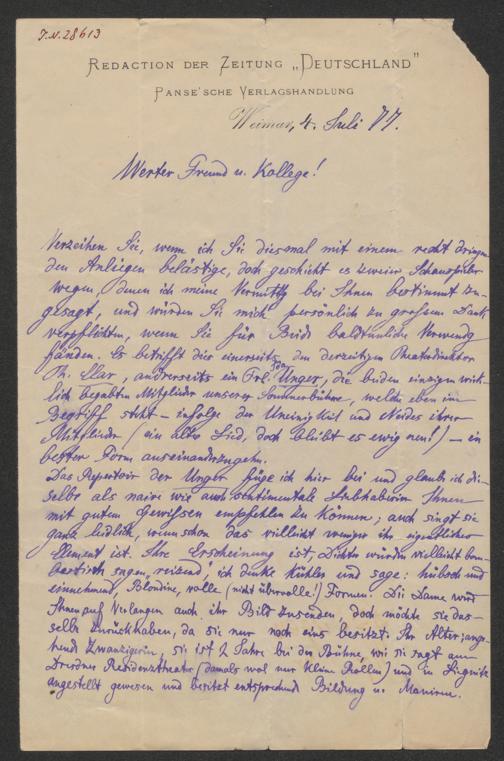 J.N. 28613
REDACTION DER ZEITUNG „DEUTSCHLAND"
PANSE'SCHE VERLAGSHANDLUNG
Weimar, 4. Juli 77.
Werter Freund u. Kollege!
Verzeihen Sie, wenn ich Sie diesmal mit einem recht dringen
den Anliegen belästige, doch geschieht es zweier Schauspieler
wegen, denen ich meine Vermittlg bei Ihnen bestimmt zu-
gesagt, und würden Sie mich persönlich zu grossem Dank
verpflichten, wenn Sie für Beide baldthunliche Verwendg
fänden. Es betrifft dies einerseits den derzeitigen Theaterdirektor
Th. Clar, andrerseits ein Frl. Unger, die beiden einzigen wirk-
lich begabten Mitglieder unserer Sommerbühne, welche eben im
Begriff steht – infolge der Uneinigkeit und Neides ihrer
Mitglieder (ein altes Lied, doch bleibt es ewig neu!) – in
bester Form auseinanderzugehn.
Das Repertoir der Unger füge ich hier bei und glaub ich die-
selbe als naive wie auch sentimentale Liebhaberin Ihnen
mit gutem Gewissen empfehlen zu können; auch singt sie
ganz leidlich, wennschon das vielleicht weniger ihr eigentliches
Element ist. Ihre Erscheinung ist, Dichter würden vielleicht bom-
bastisch sagen „reizend", ich denke kühler und sage: hübsch und
einnehmend, Blondine, volle (nicht übervolle!) Formen. Die Dame wird
Ihnen auf Verlangen auch ihr Bild zusenden, doch möchte sie das-
selbe zurückhaben, da sie nur noch eins besitzt. Ihr Alter: ange-
hend Zwanzigerin, sie ist 2 Jahre bei der Bühne, wie sie sagt am
Dresdner Residenztheater (damals wol nur kleine Rollen) und in Liegnitz
angestellt gewesen und besitzt entsprechend Bildung u. Manieren.